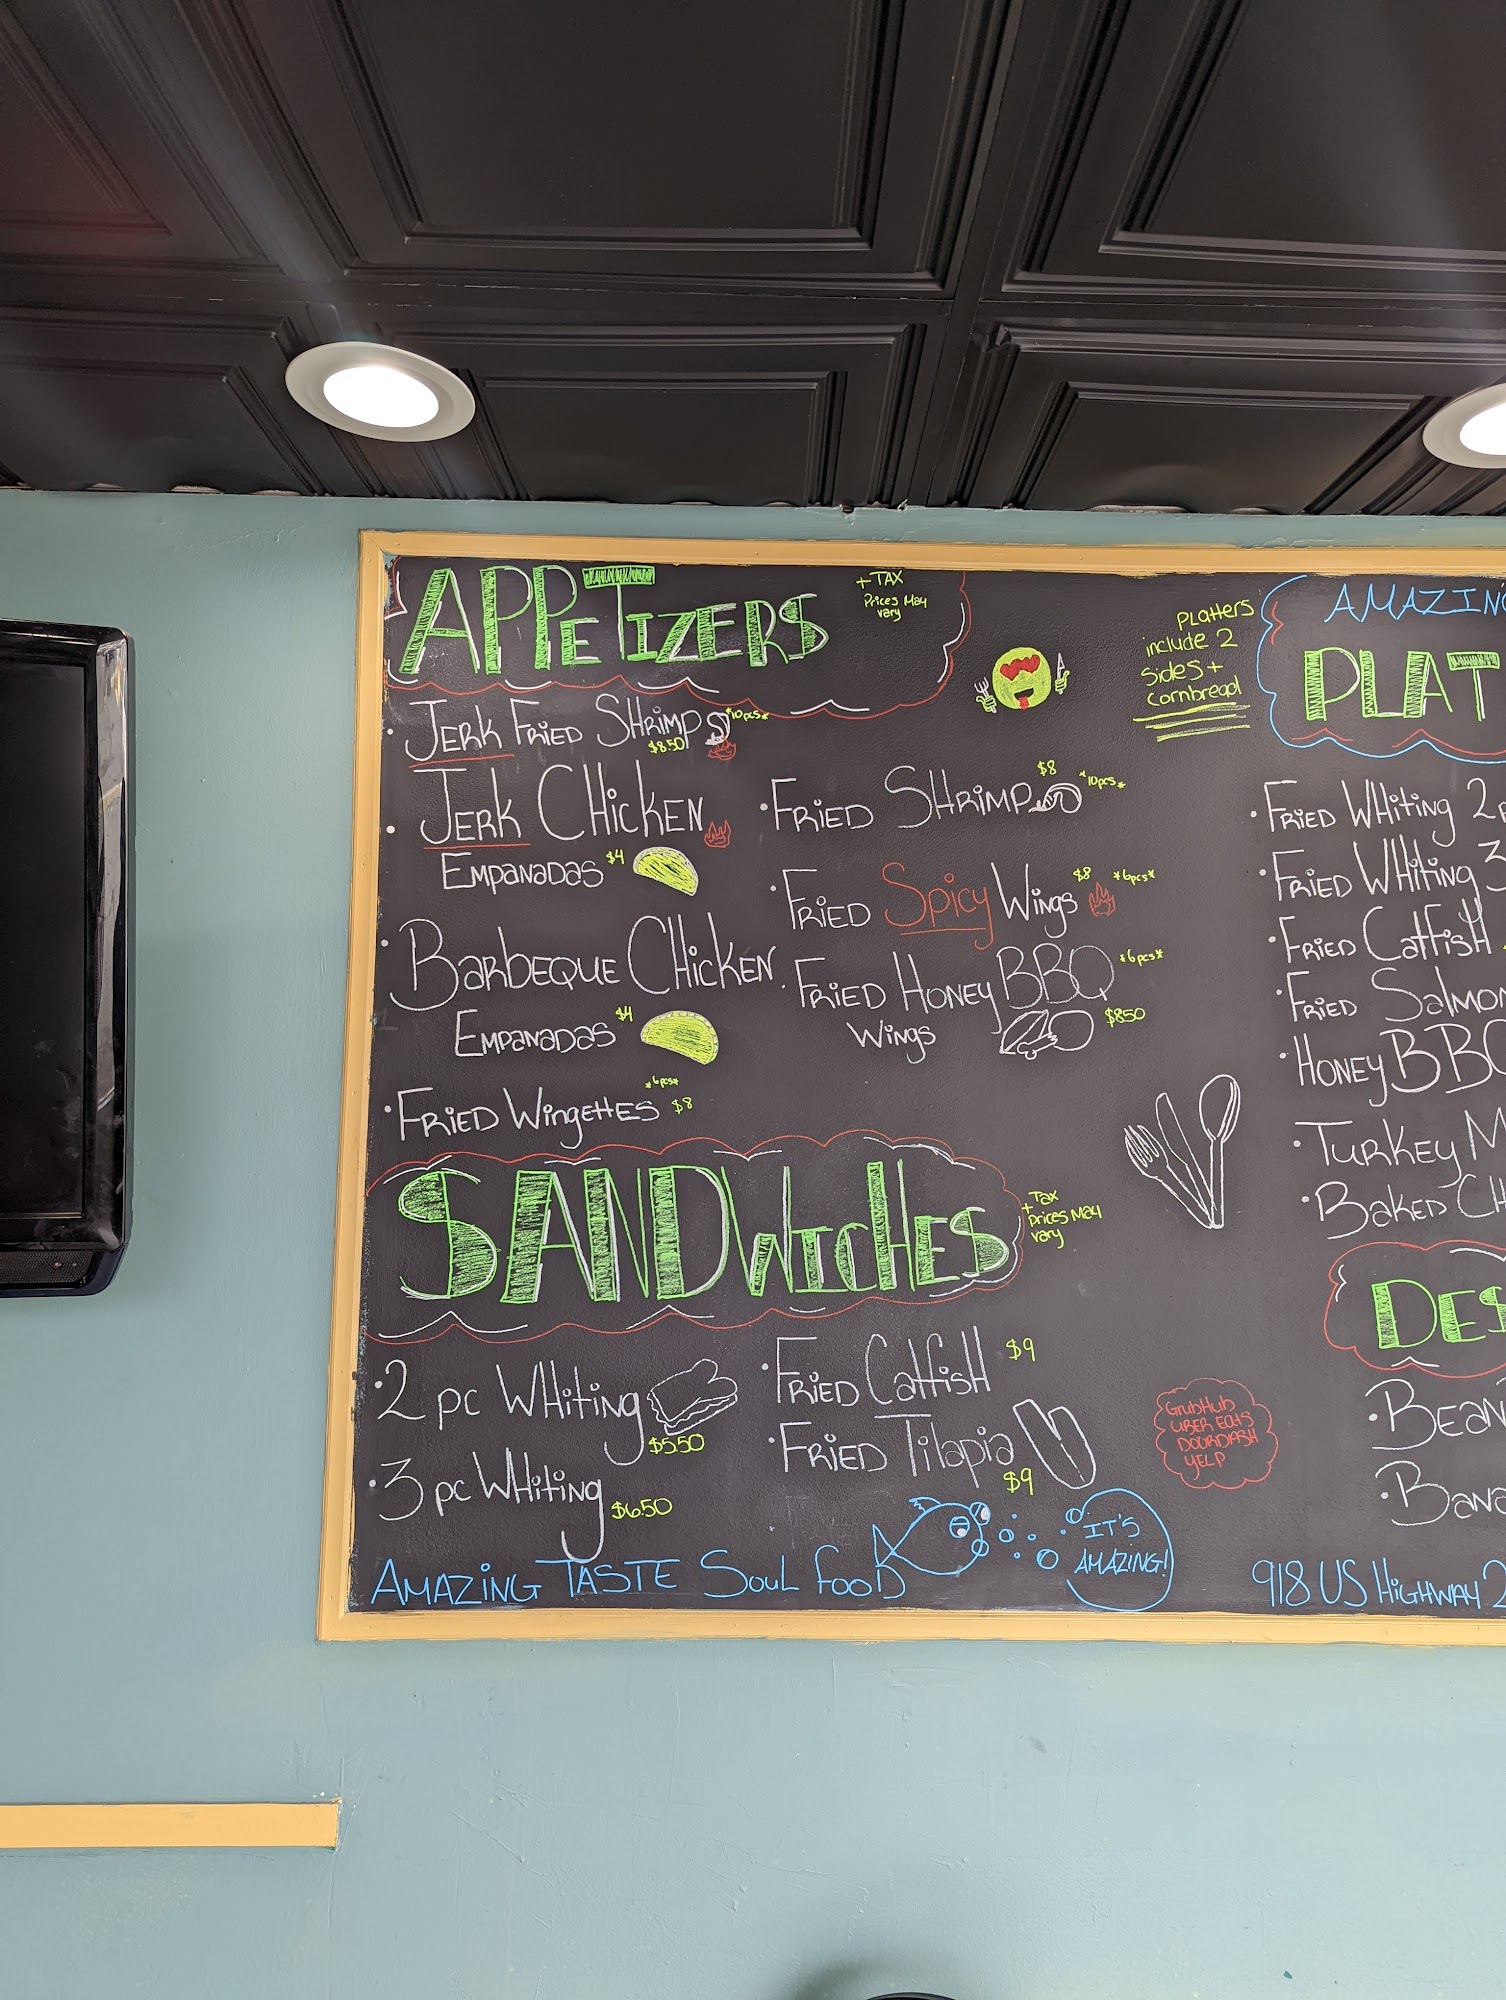 APPETIZERS
+ TAX
Prices May
vary
JERK FRIED SHRIMPS *10pcs*
$8.50
JERK CHICKEN
EMPANADAS $4
BARBEQUE CHICKEN
EMPANADAS $4
*6pcs*
FRIED WINGETTES $8
FRIED SHRIMP $8 *10pcs*
FRIED Spicy WINGS $8 *6pcs*
FRIED HONEY BBQ *6pcs*
WINGS $8.50
SANDWICHES
+ Tax
Prices May
vary
2 pc WHITING
$5.50
3 pc WHITING $6.50
FRIED CATFISH $9
FRIED Tilapia
$9
GRUBHUB
UBER EATS
DOORDASH
YELP
AMAZING TASTE SOUL FOOD
IT'S
AMAZING!
PLATTERS
include 2
sides +
cornbread
AMAZING
PLAT
FRIED WHITING 2
FRIED WHITING 3
FRIED CATFISH
FRIED SALMON
HONEY BBQ
TURKEY
BAKED CH
DES
BEAN
BANA
918 US HIGHWAY 2